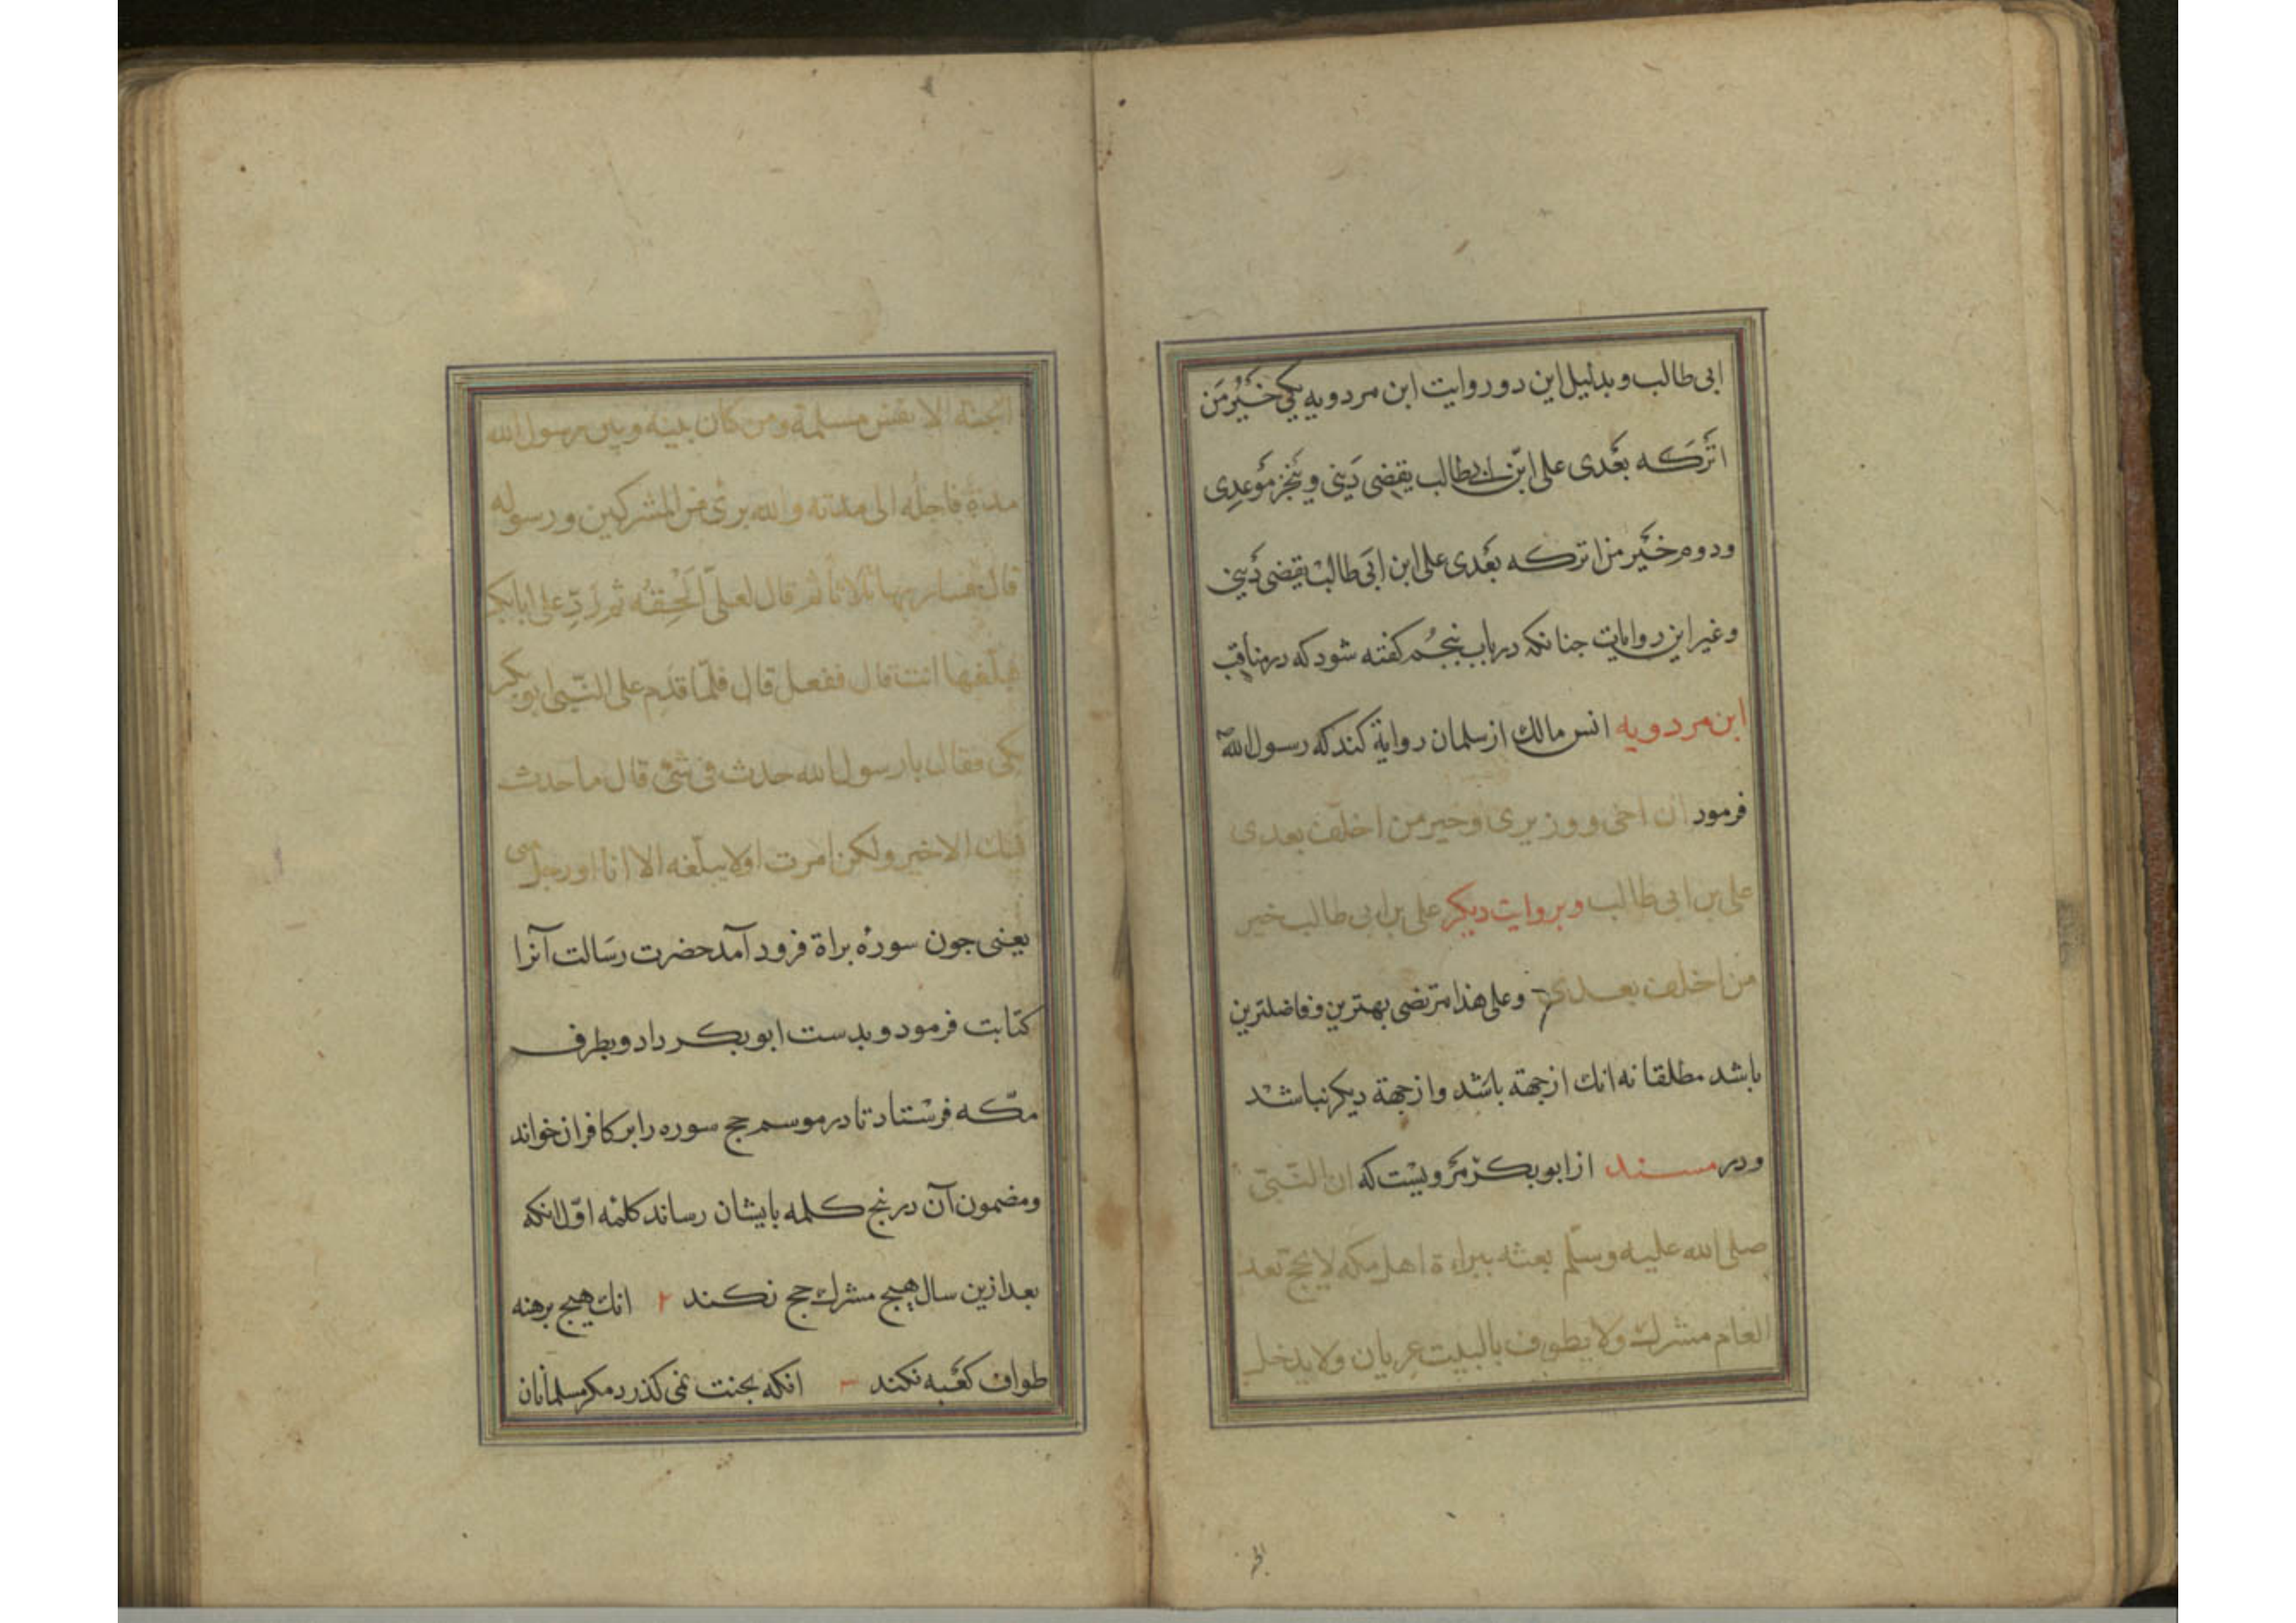 ابی طالب و بدلیل این دو روایت ابن مردویه یکی خَیْرُ مَن
اَترَکه بَعْدی علی ابن ابیطالب یقضی دَینی و ینجز مَوعِدی
ودوم خَیْر من اترکه بَعْدی علی ابن ابی طالب یقضی دَینی
وغیر این روایات جنانکه در باب بنجُم کفته شود که در مناقب
ابن مردویه انس مالك از سلمان روایة کند که رسول الله
فرمود ان اخی و وزیری وخیر من اخلف بعدی
علی بن ابی طالب وبروایت دیکر علی بن ابی طالب خیر
من اخلف بعدی وعلی هذا مرتضی بهترین وفاضلترین
باشد مطلقا نه انك از جهة باشد واز جهة دیکر نباشد
ودر مسند از ابوبکر مرویست که ان النّبیّ
صلی الله علیه وسلّم بعثه ببراءة اهل مکه لا یحج بعد
العام مشرك ولا یطوف بالبیت عریان ولا یدخل
الجـ
الجنّة الا نفس مسلمة ومن کان بینه وبین رسول الله
مدة فاجله الی مدته والله برئ من المشرکین ورسوله
قال فسار بها ثلاثا ثم قال لعلیّ اَلْحِقْه ثم رُدِّ علی ابابکر
فبلّغها انت قال ففعل قال فلمّا قدم علی النّبیّ ابو بکر
بکی فقال یا رسول الله حدث فی شئ قال ما حدث
فیك الا خیر ولکن امرت اولا یبلّغه الا انا او رجل منی
یعنی جون سورهٔ براة فرود آمد حضرت رسالت آنرا
کتابت فرمود و بدست ابوبکر داد و بطرف
مکّه فرستاد تا در موسم حج سوره را بر کافران خواند
ومضمون آن در بنج کلمه بایشان رساند کلمه اوّل انکه
بعد ازین سال هیچ مشرك حج نکند ۲ انك هیچ برهنه
طواف کعْبه نکند ۳ انکه بجنت نمی کذرد مکر مسلمانان